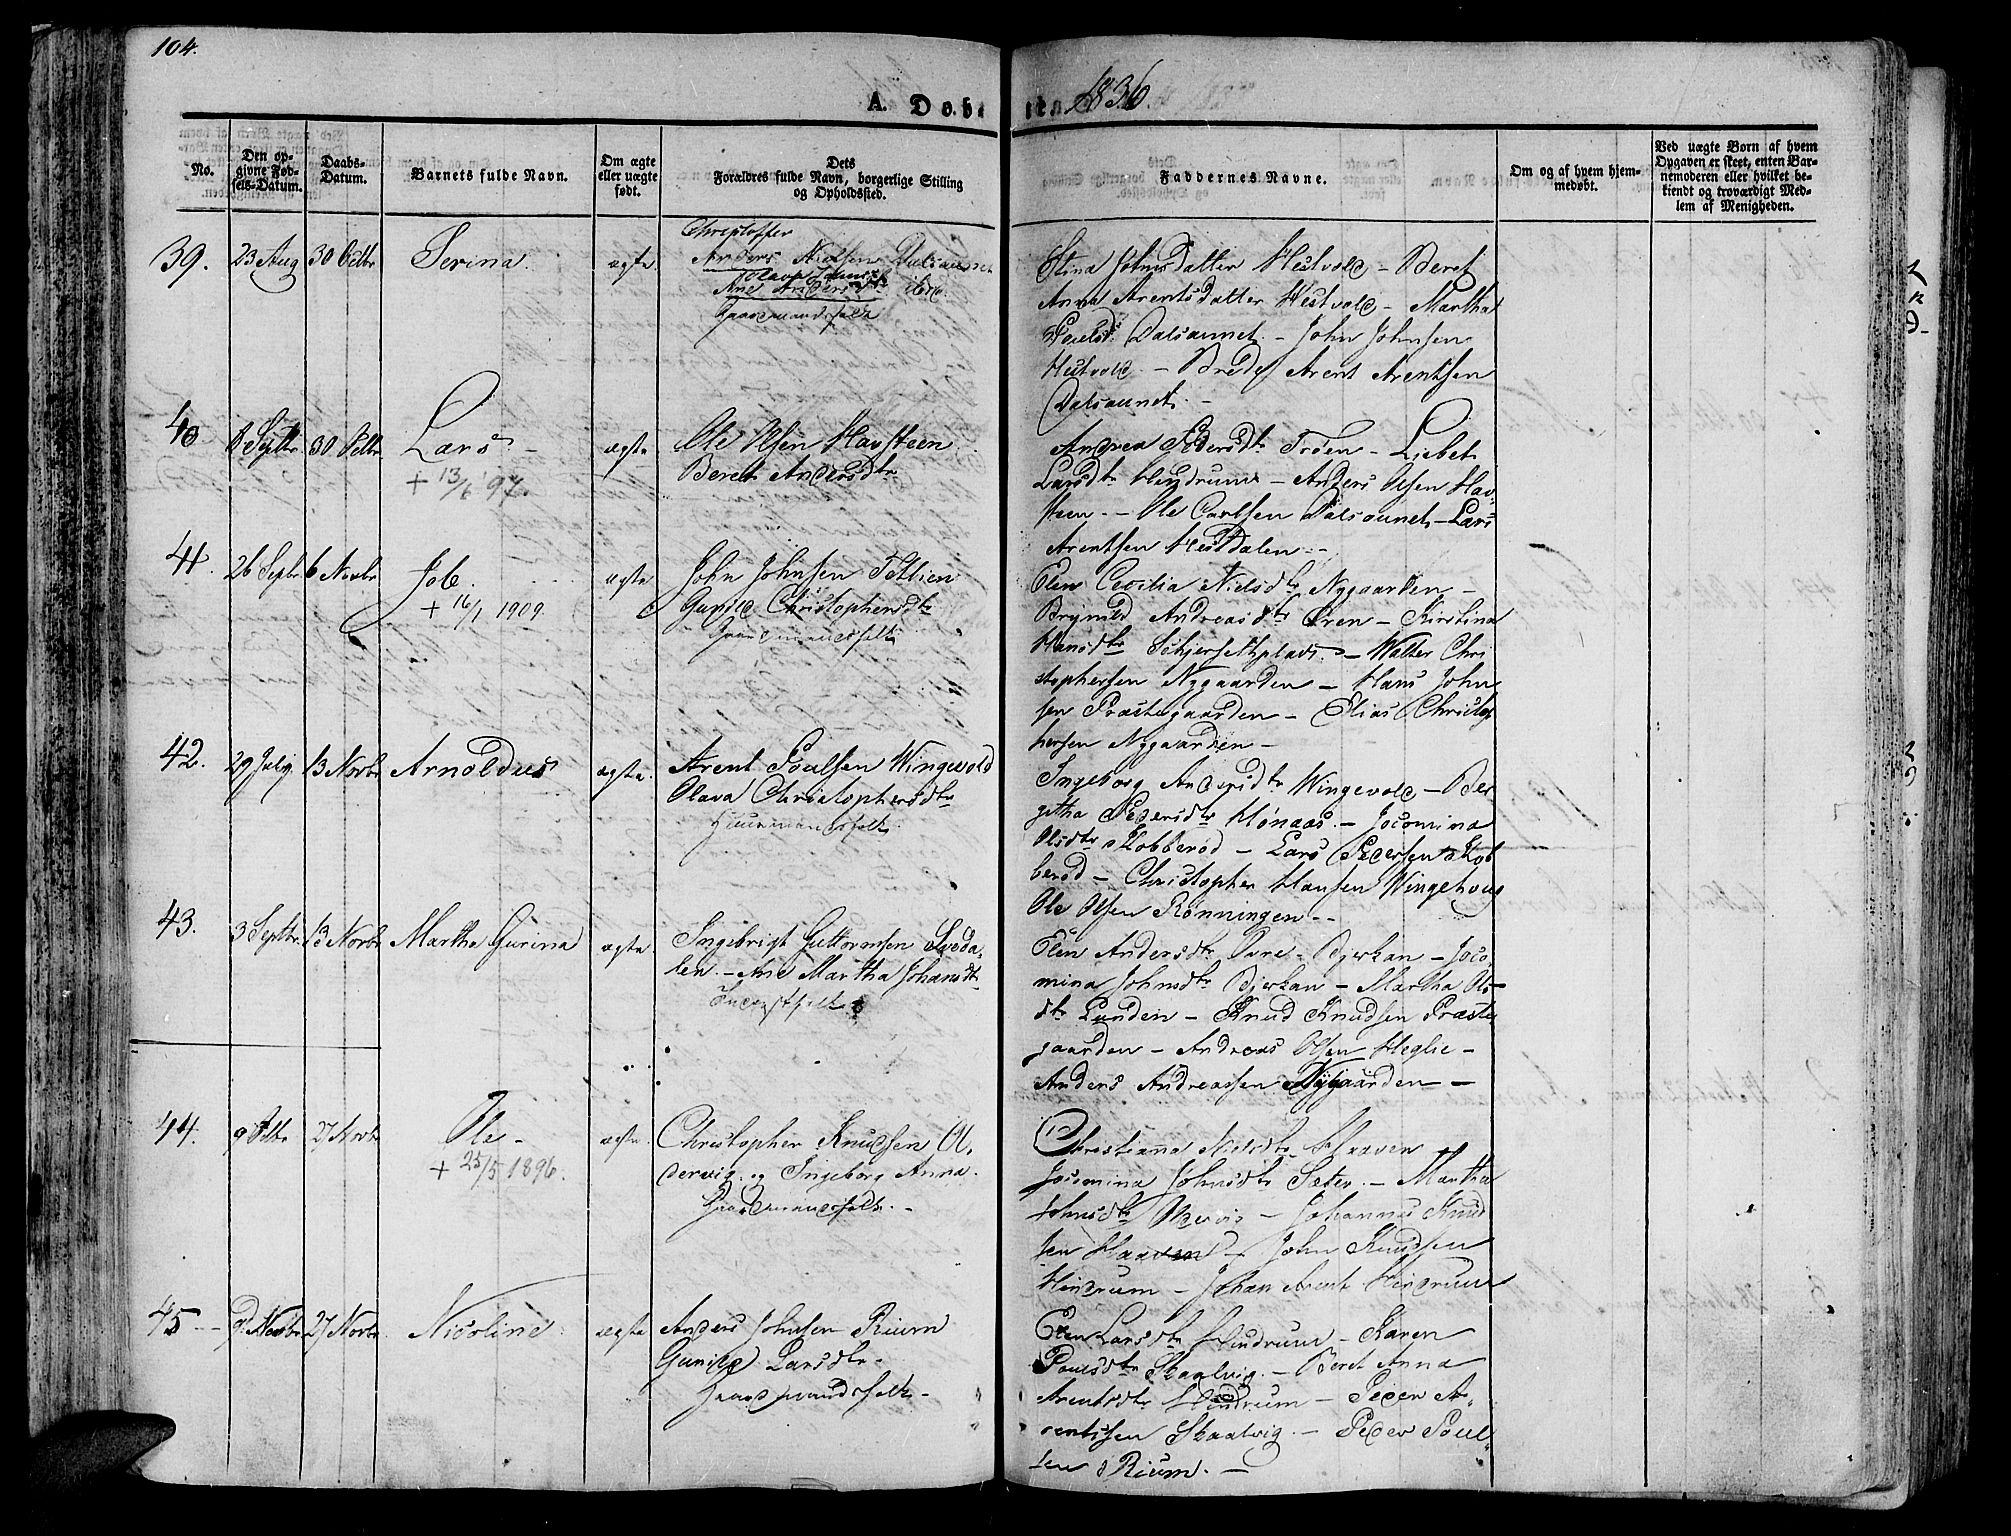 104.
A. Døbte 1836.
No.
Den opgivne Fødsels-Datum.
Daabs-Datum.
Barnets fulde Navn.
Om ægte eller uægte født.
Dets Forældres fulde Navn, borgerlige Stilling og Opholdssted.
Faddernes Navne.
Om og af hvem hjemmedøbt.
Ved uægte Børn af hvem Opgaven er skeet, enten Barnemoderen eller hvilket bekiendt og troværdigt Medlem af Menigheden.
39. 23 Aug 30 Octbr Serina ægte
Christoffer
Anders Nielsen Dalsaunet
Ane Andersdtr ibid.
Gaardmandsfolk
Stina Johnsdatter Hestvold – Beret
Anna Arentsdatter Hestvold – Martha
Poulsd. Dalsaunet – John Johnsen
Hestvold – Brede Arent Arentsen
Dalsaunet.
40 8 Septbr 30 Octbr Lars – ægte
+ 13/6 97.
Ole Olsen Havsteen
Beret Andersdtr
Andrea Pedersdtr Trøen – Lisbet
Larsdtr Hindrum – Anders Olsen Hav-
steen – Ole Carlsen Dalsaunet – Lars
Arentsen Hestdalen –
41. 26 Septbr 6 Novbr Job. ægte
+ 16/1 1909.
John Johnsen Tetlien
Gunild Christophersdtr
Gaardmandsfolk
Elen Cecilia Nielsdtr Nygaarden –
Brynild Andreasdtr Øren – Kirstina
Hansdtr Schjerfethplads – Walter Chri
stophersen Nygaarden – Hans John
sen Præstegaarden – Elias Christop
hersen Nygaarden –
42. 29 July 13 Novbr Arnoldus ægte.
Arent Poulsen Wingevold
Olava Christophersdtr
Huusmandsfolk.
Ingeborg Andersdtr Wingevold – Ber
githa Pedersdtr Hønaas – Jocomina
Olsdtr Kobberød – Lars Pedersen Kob
berød – Christopher Hansen Wingehaug
Ole Olsen Rønningen –
43. 3 Septbr 13 Novbr Martha Gurina ægte.
Ingebrigt Guttormsen Sveda-
len – Ane Martha Johansdtr
Inderstfolk
Elen Andersdtr Øvre-Bjerkan – Joco
mina Johnsdtr Bjerkan – Martha Ols
dtr Lunden – Knud Knudsen Præste
gaarden – Andreas Olsen Heglie –
Anders Andreassen Nygaarden –
44. 9 Octbr 27 Novbr Ole – ægte.
+ 25/5 1896.
Christopher Knudsen Ol-
dervig og Ingeborg Anna
Gaardmandsfolk –
Christianna Nielsdtr Haaven
Jocomina Johnsdtr Sæter – Martha
Johnsdtr – Johannes Knud
sen Haaven – John Knudsen
Hindrum – Johan Arent Hindrum
45 – Novbr 27 Novbr Nicoline ægte
Anders Johnsen Rium
Gunild Larsdtr –
Gaardmandsfolk –
Elen Larsdtr Hindrum – Karen
Poulsdtr Skaalvig – Beret Anna
Arentsdtr Hindrum – Peder A-
rentsen Skaalvig – Peder Poul-
sen Rium. –